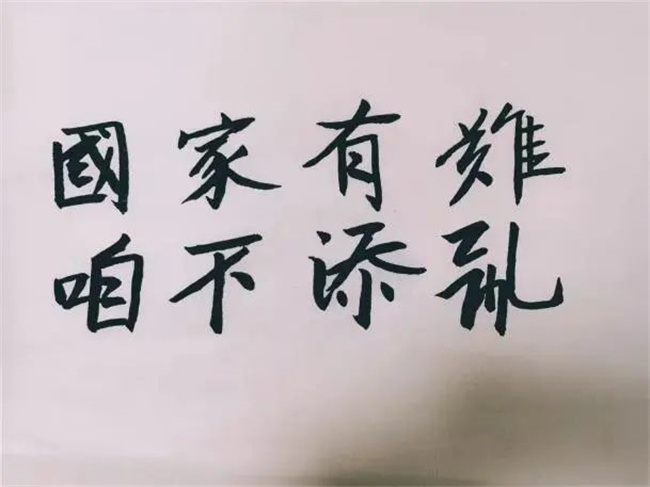 國家有難
咱不添亂